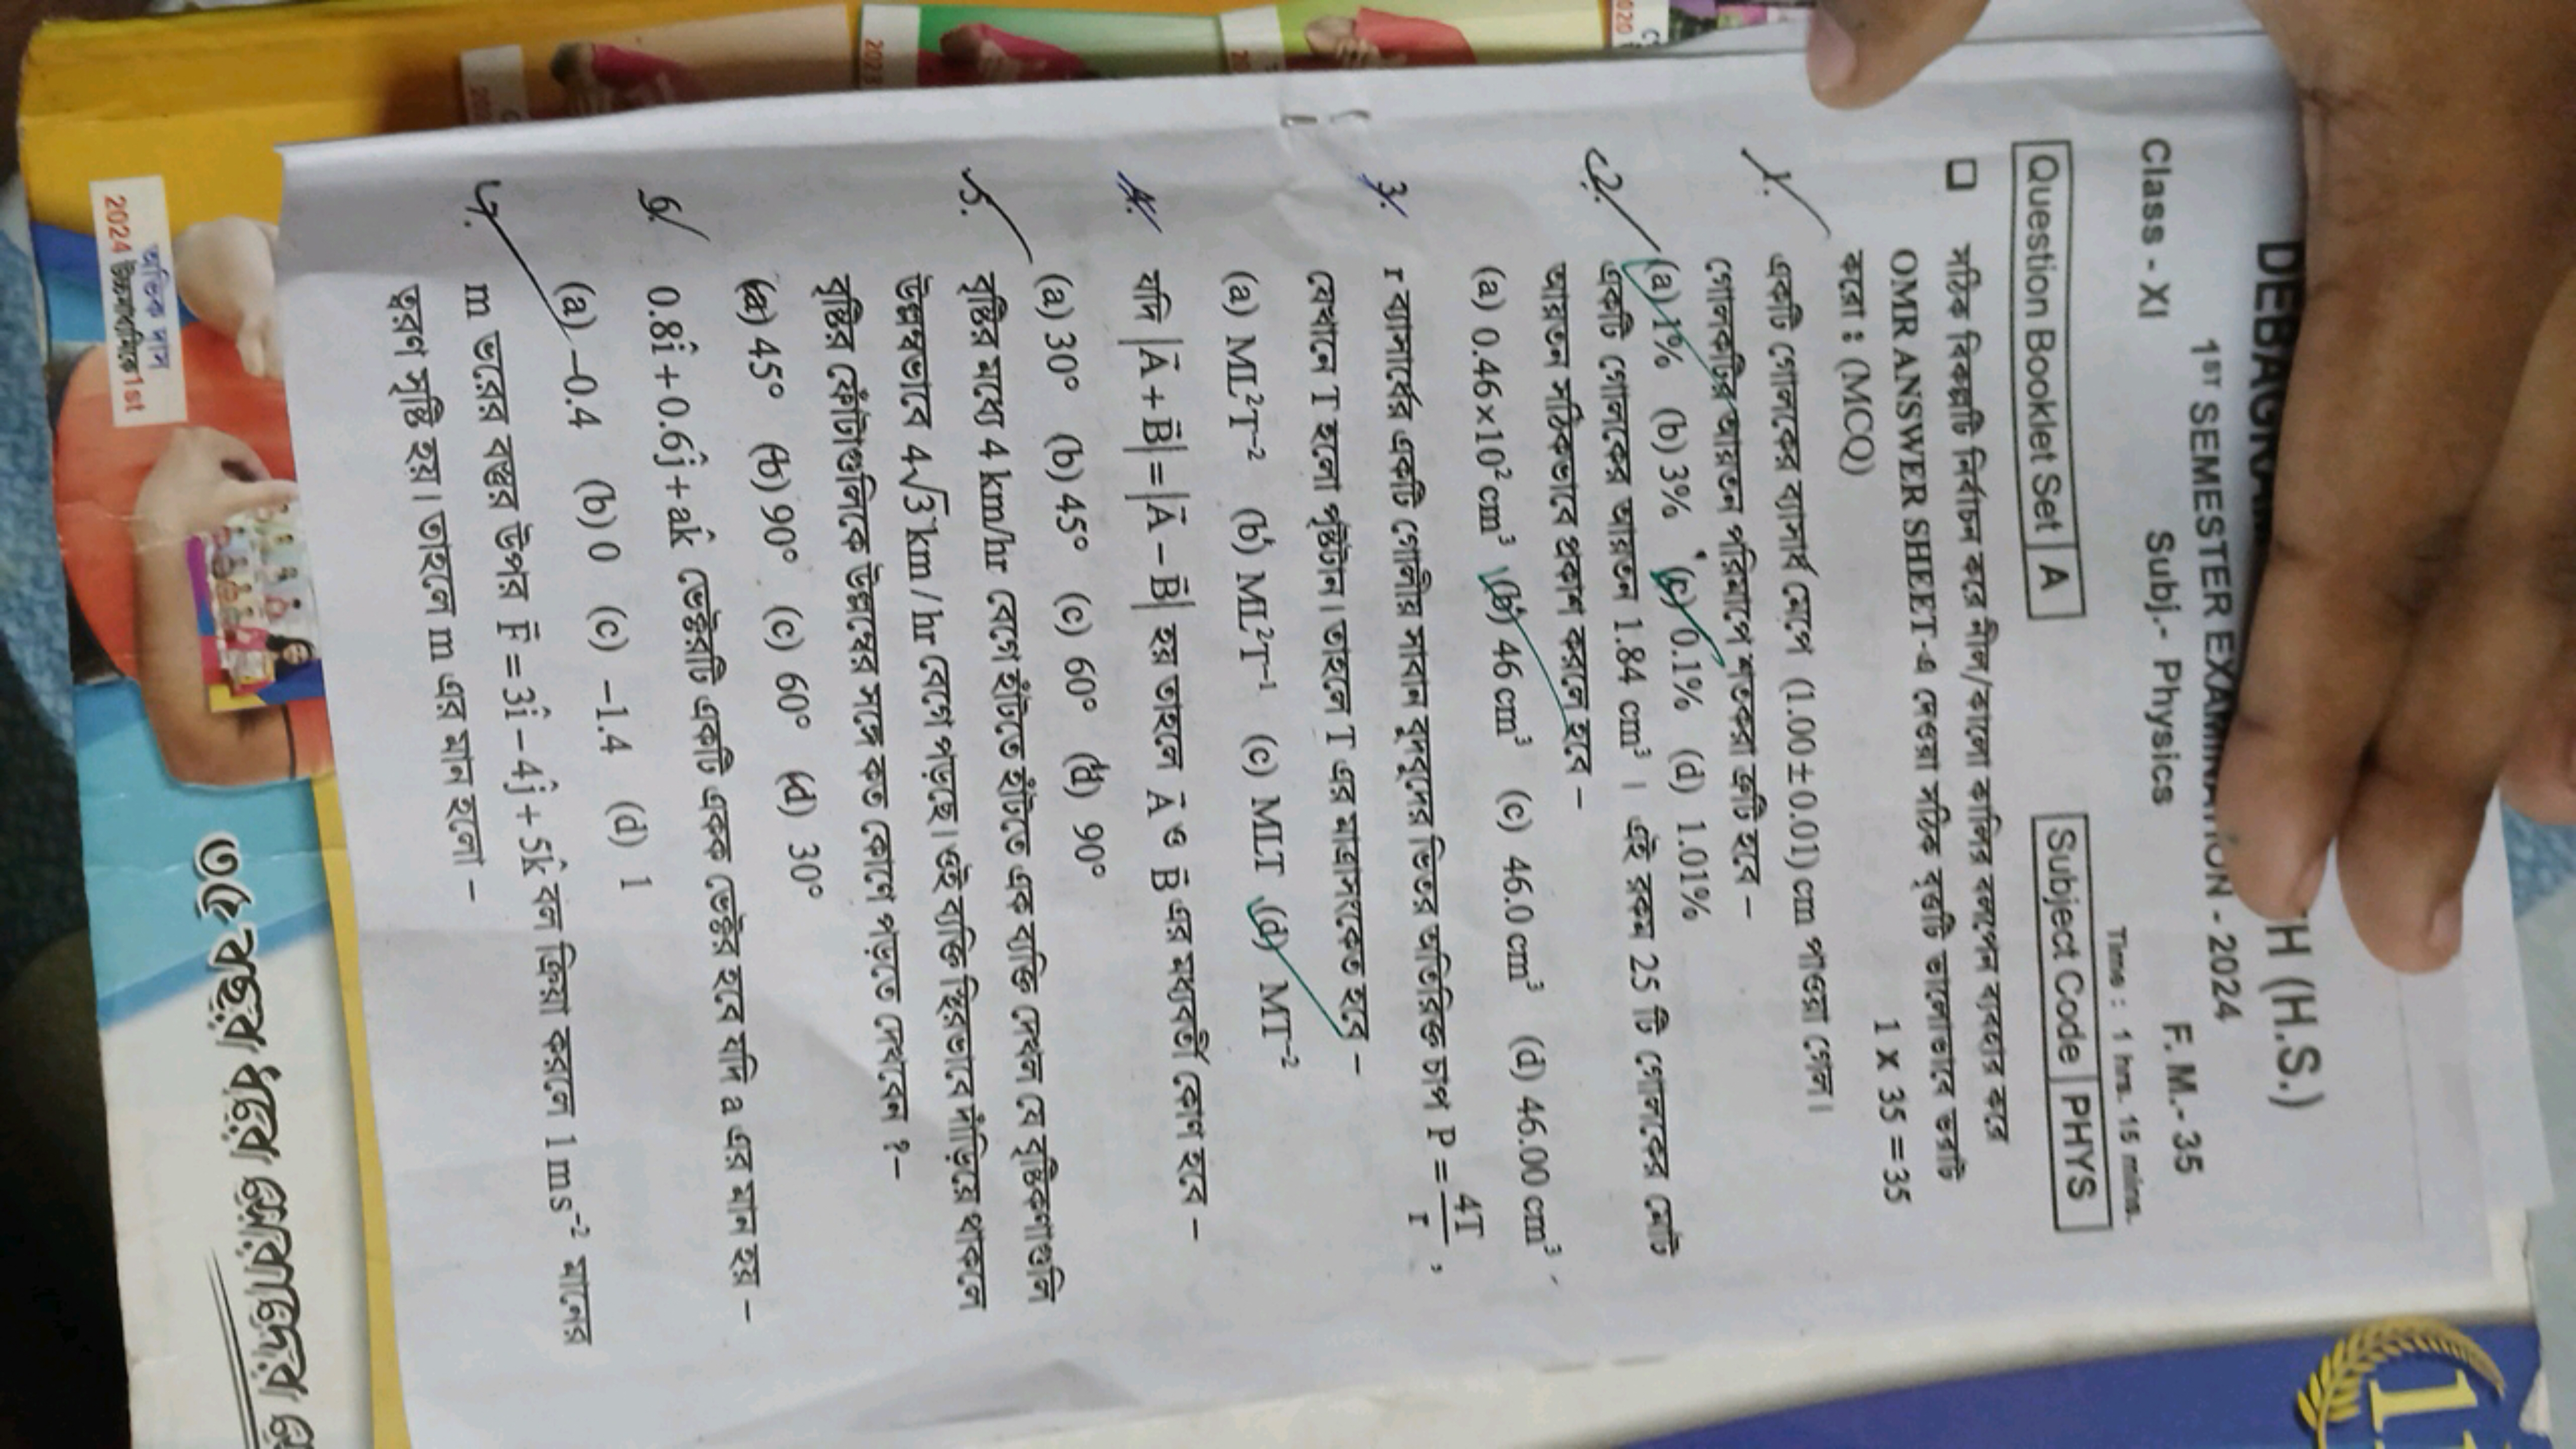 DEBAGRAM
H (H.S.)
1ST SEMESTER EXAMINATION - 2024
Class - XI Subj.- Physics F. M.- 35
Time : 1 hrs. 15 mins.
Question Booklet Set A Subject Code PHYS
□ সঠিক বিকল্পটি নির্বাচন করে নীল/কালো কালির বলপেন ব্যবহার করে
OMR ANSWER SHEET-এ দেওয়া সঠিক বৃত্তটি ভালোভাবে ভরাট
করো : (MCQ) 1 x 35 = 35
1. একটি গোলকের ব্যাসার্ধ মেপে (1.00 ± 0.01) cm পাওয়া গেল।
গোলকটির আয়তন পরিমাপে শতকরা ত্রুটি হবে –
(a) 1% (b) 3% (c) 0.1% (d) 1.01%
2. একটি গোলকের আয়তন 1.84 cm³ । এই রকম 25 টি গোলকের মোট
আয়তন সঠিকভাবে প্রকাশ করলে হবে –
(a) 0.46×10² cm³ (b) 46 cm³ (c) 46.0 cm³ (d) 46.00 cm³
3. r ব্যাসার্ধের একটি গোলীয় সাবান বুদবুদের ভিতর অতিরিক্ত চাপ P = 4T/r ,
যেখানে T হলো পৃষ্ঠটান। তাহলে T এর মাত্রাসংকেত হবে –
(a) ML²T⁻² (b) ML²T⁻¹ (c) MLT (d) MT⁻²
4. যদি |A⃗ + B⃗| = |A⃗ – B⃗| হয় তাহলে A⃗ ও B⃗ এর মধ্যবর্তী কোণ হবে –
(a) 30° (b) 45° (c) 60° (d) 90°
5. বৃষ্টির মধ্যে 4 km/hr বেগে হাঁটতে হাঁটতে এক ব্যক্তি দেখল যে বৃষ্টিকণাগুলি
উল্লম্বভাবে 4√3 km / hr বেগে পড়ছে। ওই ব্যক্তি স্থিরভাবে দাঁড়িয়ে থাকলে
বৃষ্টির ফোঁটাগুলিকে উল্লম্বের সঙ্গে কত কোণে পড়তে দেখবেন ? –
(a) 45° (b) 90° (c) 60° (d) 30°
6. 0.8î + 0.6ĵ + ak̂ ভেক্টরটি একটি একক ভেক্টর হবে যদি a এর মান হয় –
(a) –0.4 (b) 0 (c) –1.4 (d) 1
7. m ভরের বস্তুর উপর F⃗ = 3î – 4ĵ + 5k̂ বল ক্রিয়া করলে 1 ms⁻² মানের
ত্বরণ সৃষ্টি হয়। তাহলে m এর মান হলো –
অভিক দাস
2024 উচ্চমাধ্যমিকে 1st
৩৫ বছর ধরে